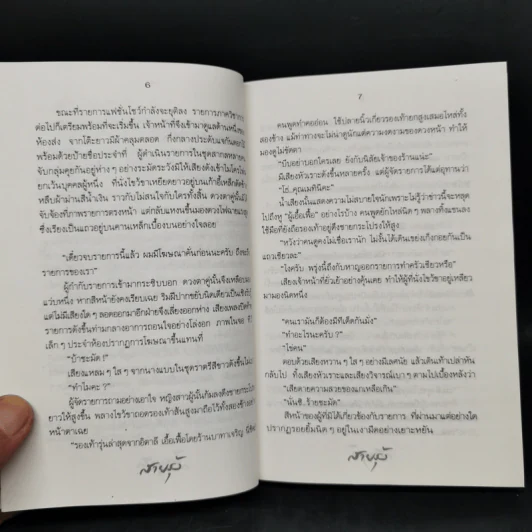 6
ขณะที่รายการแฟชั่นโชว์กำลังจะยุติลง รายการภาควิชาการ
ต่อไปก็เตรียมพร้อมที่จะเริ่มขึ้น เจ้าหน้าที่จึงเข้ามาดูแลด้านหนึ่งของ
ห้องส่ง จากโต๊ะยาวมีผ้าคลุมตลอด
พร้อมด้วยป้ายชื่อประจำที่ ผู้ดำเนินรายการในชุดสากลหลายคน
จับกลุ่มคุยกันอยู่ห่าง ๆ อย่างระมัดระวังมิให้เสียงดังเข้าไมโครโฟน
ยกเว้นบุคคลผู้หนึ่ง ที่นั่งไขว้ขาเหยียดยาวอยู่บนเก้าอี้เหล็กพับ
หลับผ้าม่านสีน้ำเงิน ราวกับไม่สนใจกับใครทั้งสิ้น ดวงตาคู่นั้น
จับจ้องที่ภาพรายการตรงหน้า
ซึ่งเรียกเป็นแถวอยู่บนคานเหล็กเบื้องบนอย่างใจลอย
“เดี๋ยวจบรายการนี้แล้ว ผมมีโฆษณาคั่นก่อนนะครับ ถึงจะ
รายการของเรา”
ผู้กำกับรายการเข้ามากระซิบบอก ดวงตาคู่นั้นจึงเหลือบมอง
แวบหนึ่ง หากสีหน้ายังคงเรียบเฉย ริมฝีปากขยับนิดเดียวเป็นเชิงรับรู้
แต่ไม่มีเสียงใด ๆ ลอดออกมาอีกฝ่ายจึงเลี่ยงออกห่าง เสียงเพลงปิดท้าย
รายการดังขึ้นท่ามกลางอาการถอนใจอย่างโล่งอก
เล็ก ๆ ประจำห้องปรากฏการโฆษณาขึ้นแทนที่
“บ้าชะมัด !”
เสียงแหลม ๆ ใส ๆ จากนางแบบในชุดราตรีสีขาวดังขึ้น
“ทำไมคะ ?”
ผู้จัดรายการถามอย่างเอาใจ หญิงสาวผู้นั้นก้มลงดึงชายกระโปรง
ยาวให้สูงขึ้น พลางไขว้ขาถอดรองเท้าส้นสูงมาถือไว้ทั้งสองข้าง
หน้าตาเฉย
“รองเท้ารุ่นล่าสุดจากอิตาลี เอื้อเฟื้อโดยร้านบาทาเจริญ
7
คนพูดทำคออ่อน ใช้ปลายนิ้วเกี่ยวรองเท้ายกสูงเสมอไหล่ทั้ง
สองข้าง แม้ท่าทางจะไม่น่าดูนักแต่ความงดงามของดวงหน้า ทำให้
มองดูไม่ขัดตา
“บีบอย่าบอกใครเลย ยังกับนิสัยเจ้าของร้านแน่ะ”
มีเสียงหัวเราะดังขึ้นหลายครั้ง แต่ผู้จัดรายการได้แต่อุทานว่า
“โธ่..คุณเมทินีคะ”
น้ำเสียงนั้นแสดงความไม่สบายใจนักเพราะไม่รู้ว่าข่าวนี้จะหลุด
ไปถึงหู “ผู้เอื้อเฟื้อ” อย่างไรบ้าง คนพูดยักไหล่นิด ๆ พลางทิ้งแขนลง
ใช้มือที่ยังถือรองเท้าอยู่ดึงชายกระโปรงให้สูง
“หวังว่าคืนดูคงไม่เชื่อเรานัก ไม่งั้นได้เดินเขย่งเก็งกอยกันเป็น
แถวเชียวละ”
“โงครับ พรุ่งนี้ถึงกับหาญออกรายการทำครัวเชียวหรือ”
เสียงเจ้าหน้าที่ยั่วเย้าอย่างคุ้นเคย ทำให้ผู้ที่นั่งไขว้ขาอยู่เหลียว
มามองนิดหนึ่ง
“คนเรามันก็ต้องมีทีเด็ดกันมั่ง”
“ทำอะไรนะครับ ?”
“ไข่คน”
ตอบด้วยเสียงหวาน ๆ ใส ๆ อย่างมีเลศนัย แล้วเดินเท้าเปล่าหัน
กลับไป ทั้งเสียงหัวเราะและเสียงวิจารณ์เบา ๆ ตามไปเบื้องหลังว่า
“เสียดายความสวยของแกเหลือเกิน”
“นั่นซิ..ร้ายชะมัด”
สีหน้าของผู้ที่มิได้เกี่ยวข้องกับรายการ ที่ผ่านมาแต่อย่างใด
ปรากฏรอยยิ้มนิด ๆ อยู่ในเงามืดอย่างเยาะหยัน